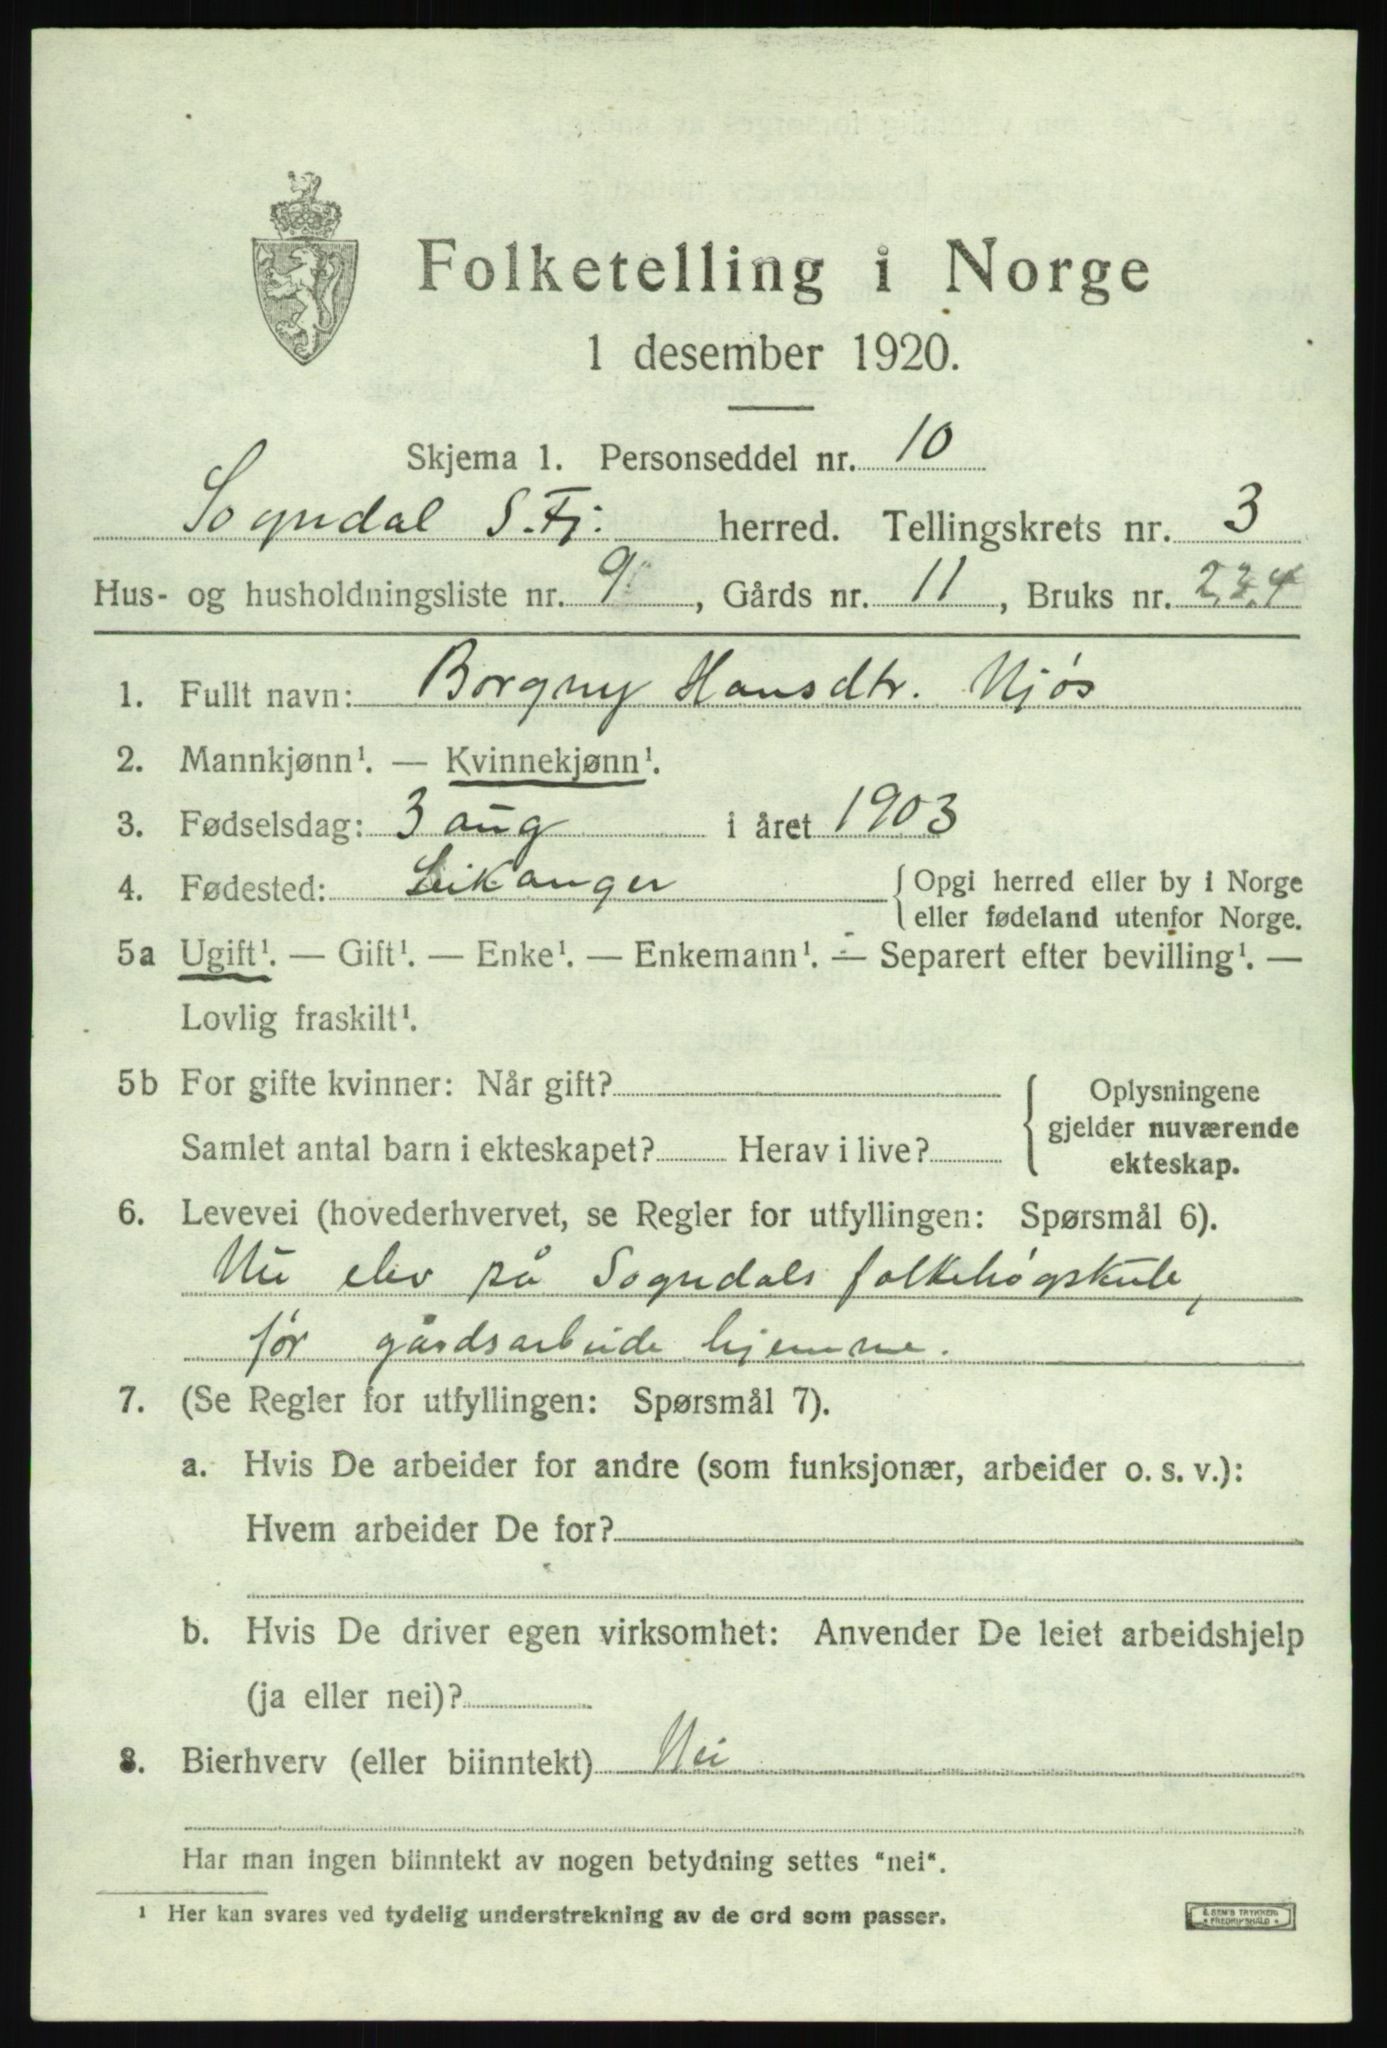 Folketelling i Norge
1 desember 1920.
Skjema 1. Personseddel nr. 10
Sogndal S.Fj. herred. Tellingskrets nr. 3
Hus- og husholdningsliste nr. 9, Gårds nr. 11, Bruks nr. 2,3,4
1. Fullt navn: Borgny Hansdtr. Njøs
2. Mannkjønn¹. — Kvinnekjønn¹.
3. Fødselsdag: 3 aug i året 1903
4. Fødested: Leikanger { Opgi herred eller by i Norge
eller fødeland utenfor Norge.
5a Ugift¹. — Gift¹. — Enke¹. — Enkemann¹. — Separert efter bevilling¹. —
Lovlig fraskilt¹.
5b For gifte kvinner: Når gift? { Oplysningene
gjelder nuværende
Samlet antal barn i ekteskapet? Herav i live? ekteskap.
6. Levevei (hovederhvervet, se Regler for utfyllingen: Spørsmål 6).
Nu elev på Sogndals folkehøgskule,
før gårdsarbeide hjemme.
7. (Se Regler for utfyllingen: Spørsmål 7).
a. Hvis De arbeider for andre (som funksjonær, arbeider o. s. v.):
Hvem arbeider De for?
b. Hvis De driver egen virksomhet: Anvender De leiet arbeidshjelp
(ja eller nei)?
8. Bierhverv (eller biinntekt) Nei
Har man ingen biinntekt av nogen betydning settes "nei".
¹ Her kan svares ved tydelig understrekning av de ord som passer.
E. SEM'S TRYKKERI
• FREDRIKSHALD •